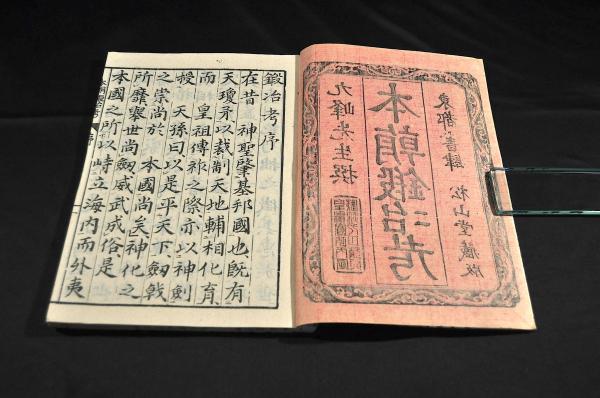 東都書肆 松山堂藏版
本朝鍛冶考
九峰先生撰
鍛冶考序
在昔 神聖肇基邦國也既有
天瓊矛以裁制天地輔相化育
而 皇祖傳祚之際亦以神劍
授 天孫曰以是平天下劍戟
之崇尚於 本國尚矣神化之
所靡舉世尚劍威武成俗是
本國之所以峙立海内而外夷